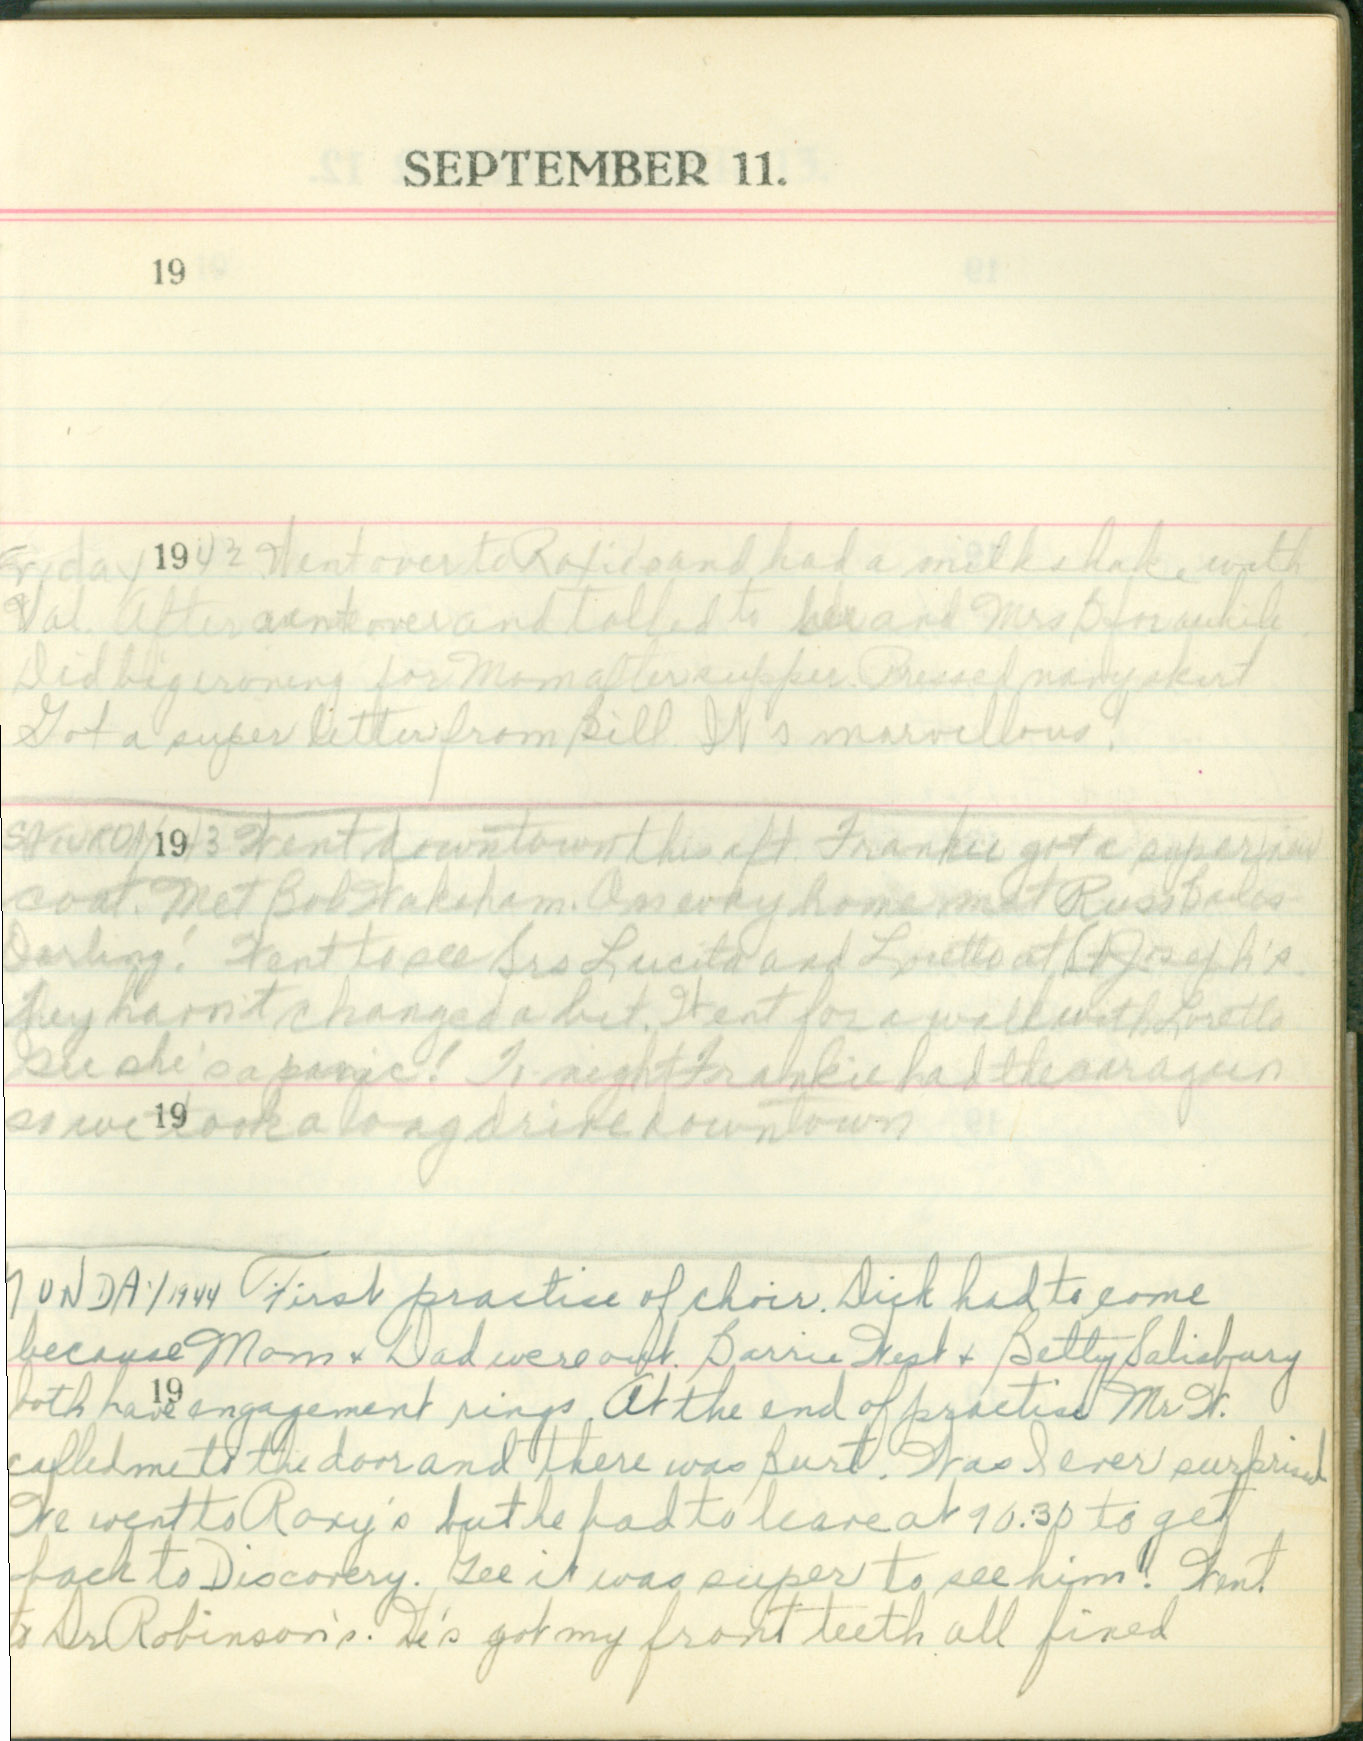 SEPTEMBER 11.
19
Friday 1942 Went over to Roxie's and had a milkshake with
Val. After went over and talked to and Mrs B for awhile.
Did big ironing for Mom after supper. Pressed navy skirt
Got a super letter from Bill. It's marvellous!
SATURDAY 1943 Went downtown this aft. Frankie got a super new
coat. Met Bob Wakeham. On way home met Russ
Darling! Went to see Srs Lucita and Loretto at St Joseph's.
they havn't changed a bit. Went for a walk with Loretto
Gee she's a panic! To-night Frankie had the car again
19
so we took a long drive downtown
MONDAY 1944 First practise of choir. Dick had to come
because Mom & Dad were out. Barrie West & Betty Salisbury
19
both have engagement rings. At the end of practise Mr W.
called me to the door and there was Burt. Was I ever surprised
We went to Roxy's but he had to leave at 10:30 to get
back to Discovery. Gee it was super to see him! Went
to Dr Robinson's. He's got my front teeth all fixed